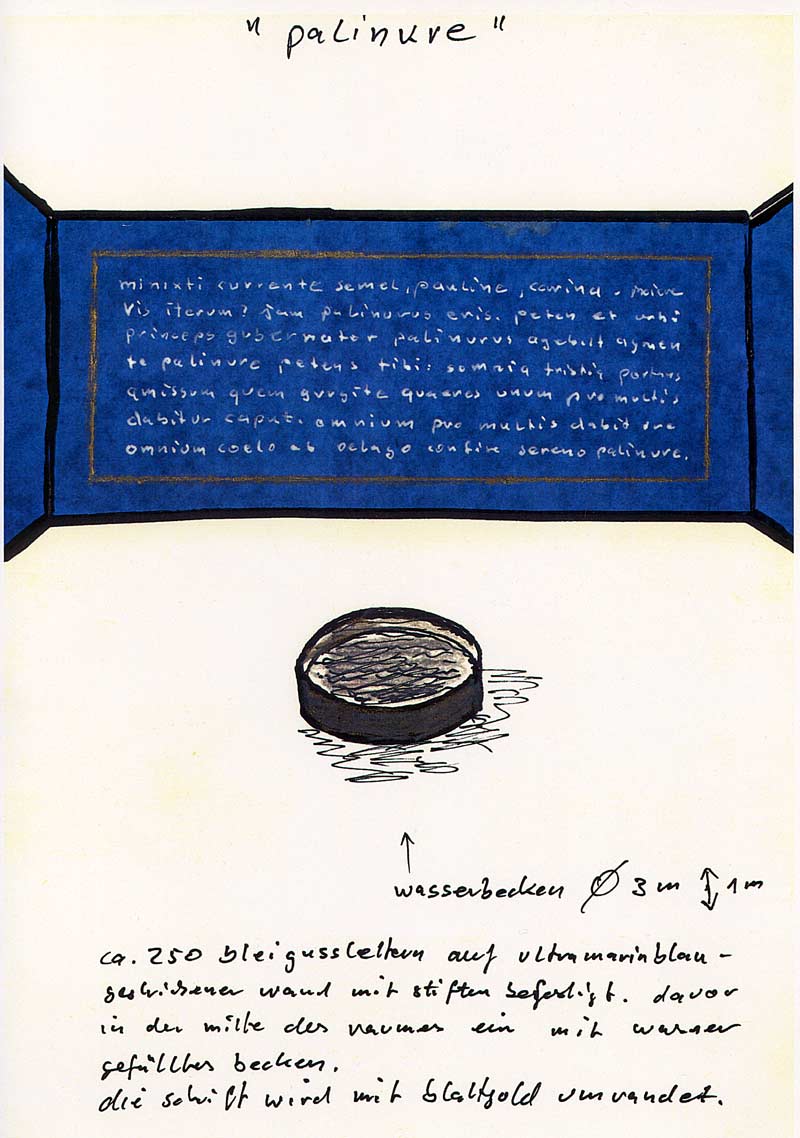 "palinure"
minixti currente semel, pauline, carina. meiere
vis iterum? jam palinurus eris. peten et unhi
princeps gubernator palinurus agebit agmen
te palinure petens tibi: somnia tristia portans
amissum quem gurgite quaeres unum pro multis
dabitur caput. omnium pro multis dabit ure
omnium coelo et pelago confise sereno palinure.
wasserbecken ⌀ 3 m ↕ 1 m
ca. 250 bleigusslettern auf ultramarinblau-
gestrichener wand mit stiften befestigt. davor
in der mitte des raumes ein mit wasser
gefülltes becken.
die schrift wird mit blattgold umrandet.